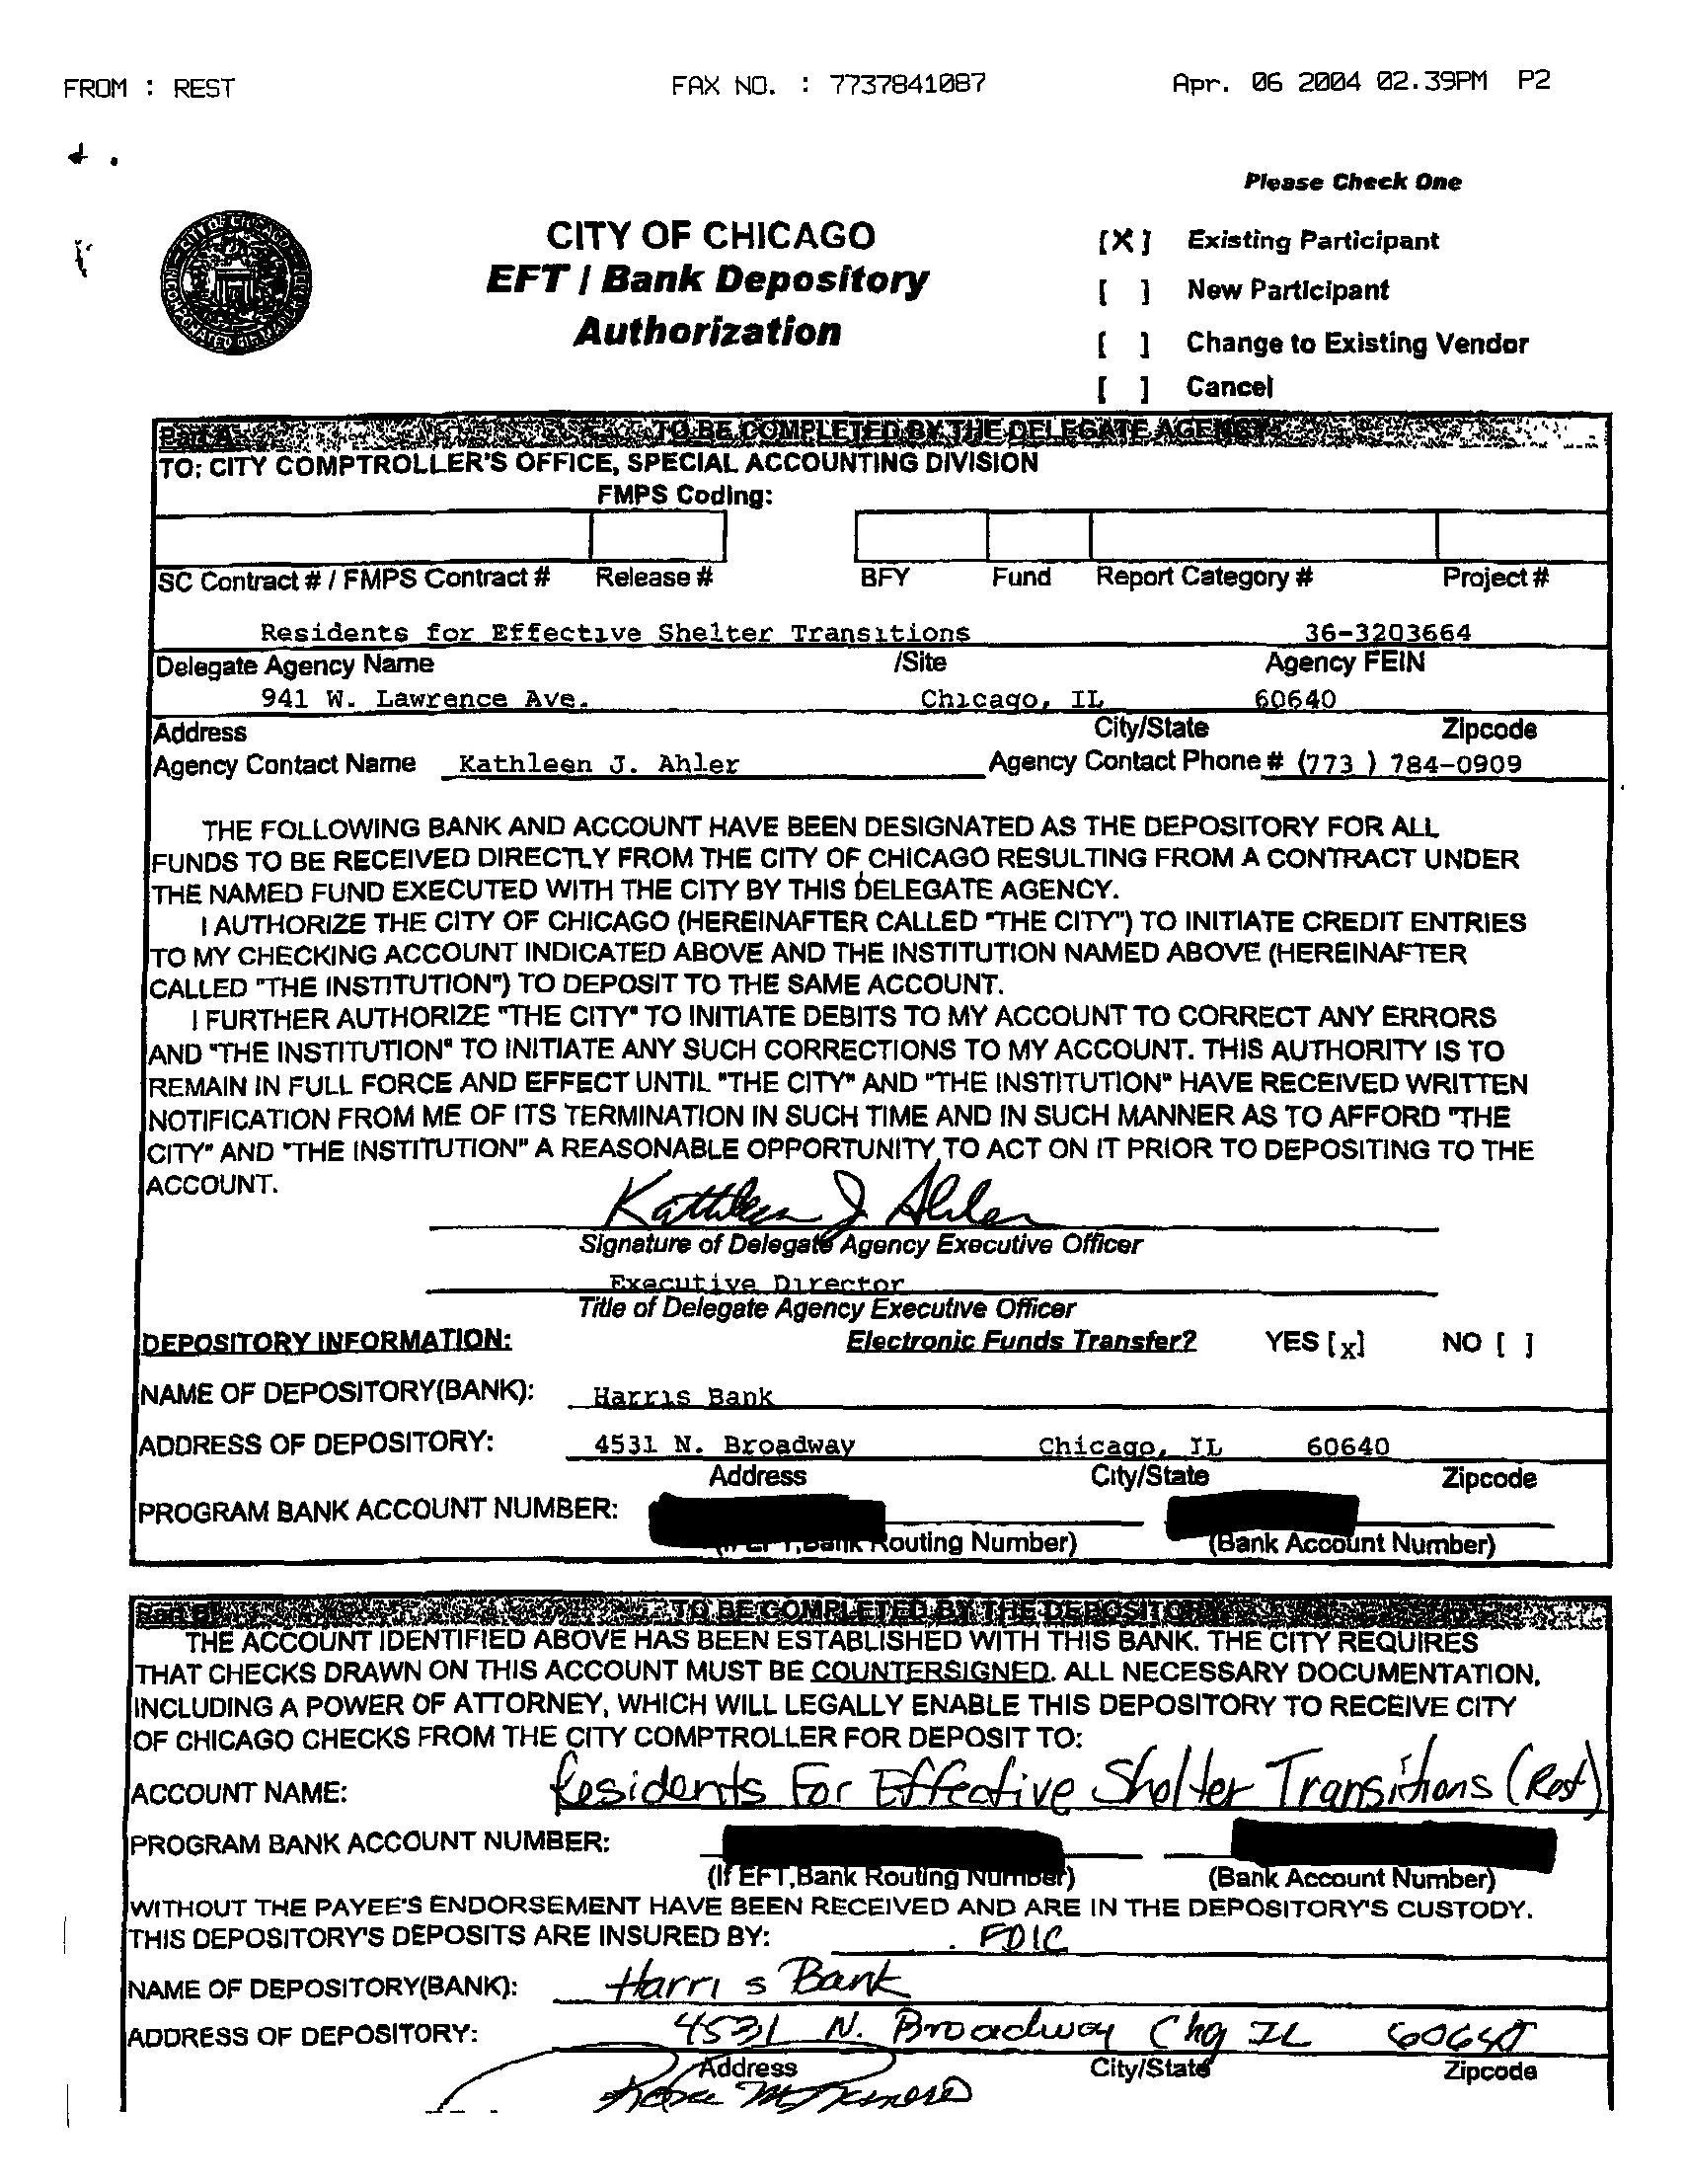 FROM : REST FAX NO. : 7737841087 Apr. 06 2004 02.39PM P2
Please Check One
CITY OF CHICAGO
EFT / Bank Depository
Authorization
[X] Existing Participant
[ ] New Participant
[ ] Change to Existing Vendor
[ ] Cancel
Part A TO BE COMPLETED BY THE DELEGATE AGENCY
TO: CITY COMPTROLLER'S OFFICE, SPECIAL ACCOUNTING DIVISION
FMPS Coding:
SC Contract # / FMPS Contract # Release # BFY Fund Report Category # Project #
Residents for Effective Shelter Transitions 36-3203664
Delegate Agency Name /Site Agency FEIN
941 W. Lawrence Ave. Chicago, IL 60640
Address City/State Zipcode
Agency Contact Name Kathleen J. Ahler Agency Contact Phone # (773 ) 784-0909
THE FOLLOWING BANK AND ACCOUNT HAVE BEEN DESIGNATED AS THE DEPOSITORY FOR ALL
FUNDS TO BE RECEIVED DIRECTLY FROM THE CITY OF CHICAGO RESULTING FROM A CONTRACT UNDER
THE NAMED FUND EXECUTED WITH THE CITY BY THIS DELEGATE AGENCY.
I AUTHORIZE THE CITY OF CHICAGO (HEREINAFTER CALLED "THE CITY") TO INITIATE CREDIT ENTRIES
TO MY CHECKING ACCOUNT INDICATED ABOVE AND THE INSTITUTION NAMED ABOVE (HEREINAFTER
CALLED "THE INSTITUTION") TO DEPOSIT TO THE SAME ACCOUNT.
I FURTHER AUTHORIZE "THE CITY" TO INITIATE DEBITS TO MY ACCOUNT TO CORRECT ANY ERRORS
AND "THE INSTITUTION" TO INITIATE ANY SUCH CORRECTIONS TO MY ACCOUNT. THIS AUTHORITY IS TO
REMAIN IN FULL FORCE AND EFFECT UNTIL "THE CITY" AND "THE INSTITUTION" HAVE RECEIVED WRITTEN
NOTIFICATION FROM ME OF ITS TERMINATION IN SUCH TIME AND IN SUCH MANNER AS TO AFFORD "THE
CITY" AND "THE INSTITUTION" A REASONABLE OPPORTUNITY TO ACT ON IT PRIOR TO DEPOSITING TO THE
ACCOUNT.
Kathleen J Ahler
Signature of Delegate Agency Executive Officer
Executive Director
Title of Delegate Agency Executive Officer
DEPOSITORY INFORMATION: Electronic Funds Transfer? YES [x] NO [ ]
NAME OF DEPOSITORY(BANK): Harris Bank
ADDRESS OF DEPOSITORY: 4531 N. Broadway Chicago, IL 60640
Address City/State Zipcode
PROGRAM BANK ACCOUNT NUMBER:
(If EFT,Bank Routing Number) (Bank Account Number)
Part B TO BE COMPLETED BY THE DEPOSITORY
THE ACCOUNT IDENTIFIED ABOVE HAS BEEN ESTABLISHED WITH THIS BANK. THE CITY REQUIRES
THAT CHECKS DRAWN ON THIS ACCOUNT MUST BE COUNTERSIGNED. ALL NECESSARY DOCUMENTATION,
INCLUDING A POWER OF ATTORNEY, WHICH WILL LEGALLY ENABLE THIS DEPOSITORY TO RECEIVE CITY
OF CHICAGO CHECKS FROM THE CITY COMPTROLLER FOR DEPOSIT TO:
ACCOUNT NAME: Residents For Effective Shelter Transitions (Rest)
PROGRAM BANK ACCOUNT NUMBER:
(If EFT,Bank Routing Number) (Bank Account Number)
WITHOUT THE PAYEE'S ENDORSEMENT HAVE BEEN RECEIVED AND ARE IN THE DEPOSITORY'S CUSTODY.
THIS DEPOSITORY'S DEPOSITS ARE INSURED BY: FDIC
NAME OF DEPOSITORY(BANK): Harris Bank
ADDRESS OF DEPOSITORY: 4531 N. Broadway Chg IL 60640
Address City/State Zipcode